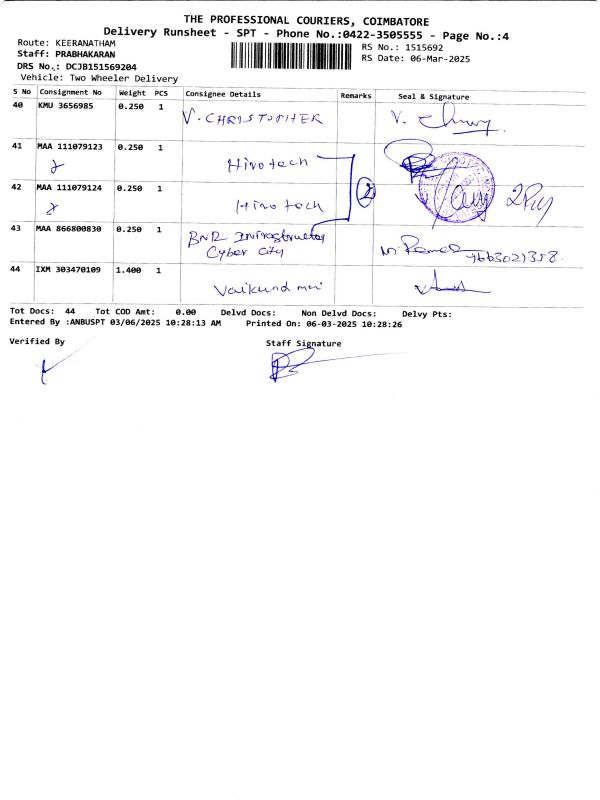 THE PROFESSIONAL COURIERS, COIMBATORE
Delivery Runsheet - SPT - Phone No.:0422-3505555 - Page No.:4
Route: KEERANATHAM
RS No.: 1515692
Staff: PRABHAKARAN
RS Date: 06-Mar-2025
DRS No.: DCJB151569204
Vehicle: Two Wheeler Delivery
S No Consignment No Weight PCS Consignee Details Remarks Seal & Signature
40 KMU 3656985 0.250 1 V. CHRISTOPHER V.
41 MAA 111079123 0.250 1 Hirotech
42 MAA 111079124 0.250 1 Hirotech 2
43 MAA 866800830 0.250 1 BNR Infrastructor
Cyber City
44 IXM 303470109 1.400 1
Tot Docs: 44 Tot COD Amt: 0.00 Delvd Docs: Non Delvd Docs: Delvy Pts:
Entered By :ANBUSPT 03/06/2025 10:28:13 AM Printed On: 06-03-2025 10:28:26
Verified By Staff Signature